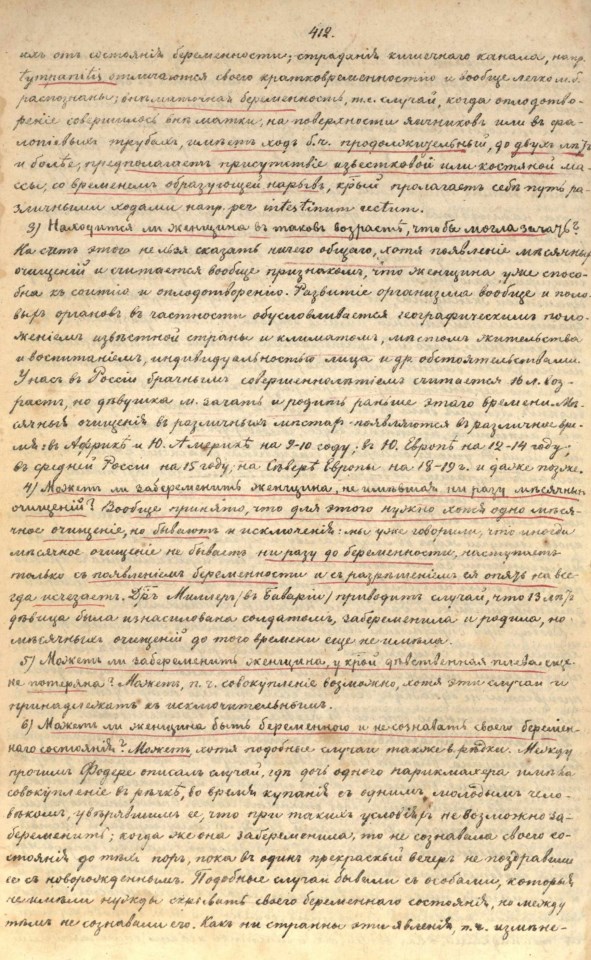 412.
ихъ отъ состоянія беременности; страданія кишечнаго канала, напр.
tympanitis отличаются своею кратковременностію и вообще легко м. б.
распознаны; внѣматочная беременность, т.е. случай, когда оплодотво-
реніе совершилось внѣ матки, на поверхности яичниковъ или въ фа-
лопіевыхъ трубахъ, имѣетъ ходъ б.ч. продолжительный, до двухъ лѣтъ
и болѣе, предполагаетъ присутствіе известковой или костяной мас-
сы, со временемъ образующей нарывъ, к��рый пролагаетъ себѣ путь ра-
зличными ходами напр. per intestinum rectum.
3) Находится ли женщина въ таковъ возрастѣ, чтобы могла зачать?
На счетъ этого нельзя сказать ничего общаго, хотя появленіе мѣсячныхъ
очищеній и считается вообще признакомъ, что женщина уже спосо-
бна къ соитію и оплодотворенію. Развитіе организма вообще и поло-
выхъ органовъ въ частности обусловливается географическимъ поло-
женіемъ извѣстной страны и климатомъ, мѣстомъ жительства
и воспитаніемъ, индивидуальностью лица и др. обстоятельствами.
У насъ въ Россіи брачнымъ совершеннолѣтіемъ считается 16 л. воз-
растъ, но дѣвушка м. зачать и родить раньше этого времени. Мѣ-
сячныя очищенія въ различныхъ мѣстахъ появляются въ различное вре-
мя: въ Африкѣ и Ю. Америкѣ на 9-10 году; въ Ю. Европѣ на 12-14 году;
въ средней Россіи на 15 году; на Сѣверѣ Европы на 18-19 г. и даже позже.
4) Можетъ ли забеременить женщина, не имѣвшая ни разу мѣсячныхъ
очищеній? Вообще принято, что для этого нужно хотя одно мѣся-
чное очищеніе, но бываютъ и исключенія: мы уже говорили, что иногда
мѣсячное очищеніе не бываетъ ни разу до беременности, наступаетъ
только съ появленіемъ беременности и съ разрѣшеніемъ ея опять на все-
гда исчезаетъ. Дръ Миллеръ /въ Баваріи/ приводитъ случай, что 13 лѣтъ
дѣвица была изнасилована солдатомъ, забеременила и родила, но
мѣсячныхъ очищеній до того времени еще не имѣла.
5) Можетъ ли забеременить женщина, у к��рой дѣвственная плева еще
не потеряна? Можетъ, п. ч. совокупленіе возможно, хотя эти случаи и
принадлежатъ къ исключительнымъ.
6) Можетъ ли женщина быть беременною и не сознавать своего беремен-
наго состоянія? Можетъ, хотя подобные случаи также рѣдки. Между
прочимъ Фодере описалъ случай, гдѣ дочь одного парикмахера имѣла
совокупленіе въ рѣчкѣ, во время купанія съ однимъ молодымъ чело-
вѣкомъ, увѣрявшимъ ее, что при такихъ условіяхъ невозможно за-
беременить; когда же она забеременила, то не сознавала своего со-
стоянія до тѣхъ поръ, пока въ одинъ прекрасный вечеръ не поздравили
ее съ новорожденнымъ. Подобные случаи бывали съ особами, которыя
не имѣли нужды скрывать своего беременнаго состоянія, но между
тѣмъ не сознавали его. Какъ ни странны эти явленія, п. ч. измѣне-